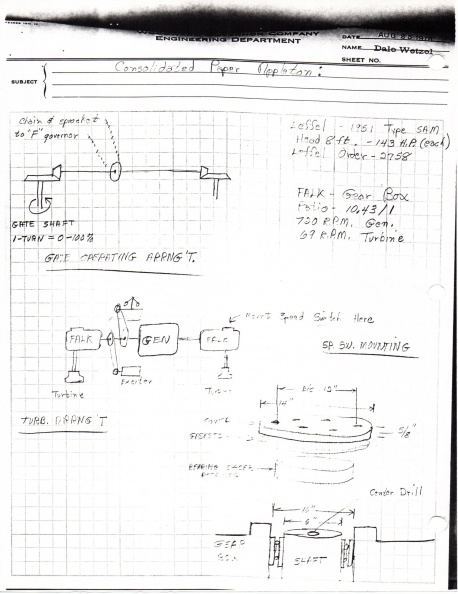 COMPANY
ENGINEERING DEPARTMENT
DATE AUG 25
NAME Dale Wetzel
SHEET NO.
SUBJECT
Consolidated Paper Appleton:
Chain & sprocket
to "F" governor
GATE SHAFT
1-TURN = 0-100%
GATE OPERATING ARRNG'T.
Leffel - 1951 Type SAM
Head 8 ft. - 143 H.P. (each)
Leffel Order - 2758
FALK - Gear Box
Ratio - 10.43/1
720 R.P.M. Gen.
69 R.P.M. Turbine
Mount Speed Switch Here
FALK
GEN
FALK
Exciter
Turbine
Turb.
TURB. ARRNG'T
SP. SW. MOUNTING
DIE 12"
14"
COVER
GASKETS
5/8"
BEARING COVER
Center Drill
10"
6"
GEAR
BOX
SHAFT